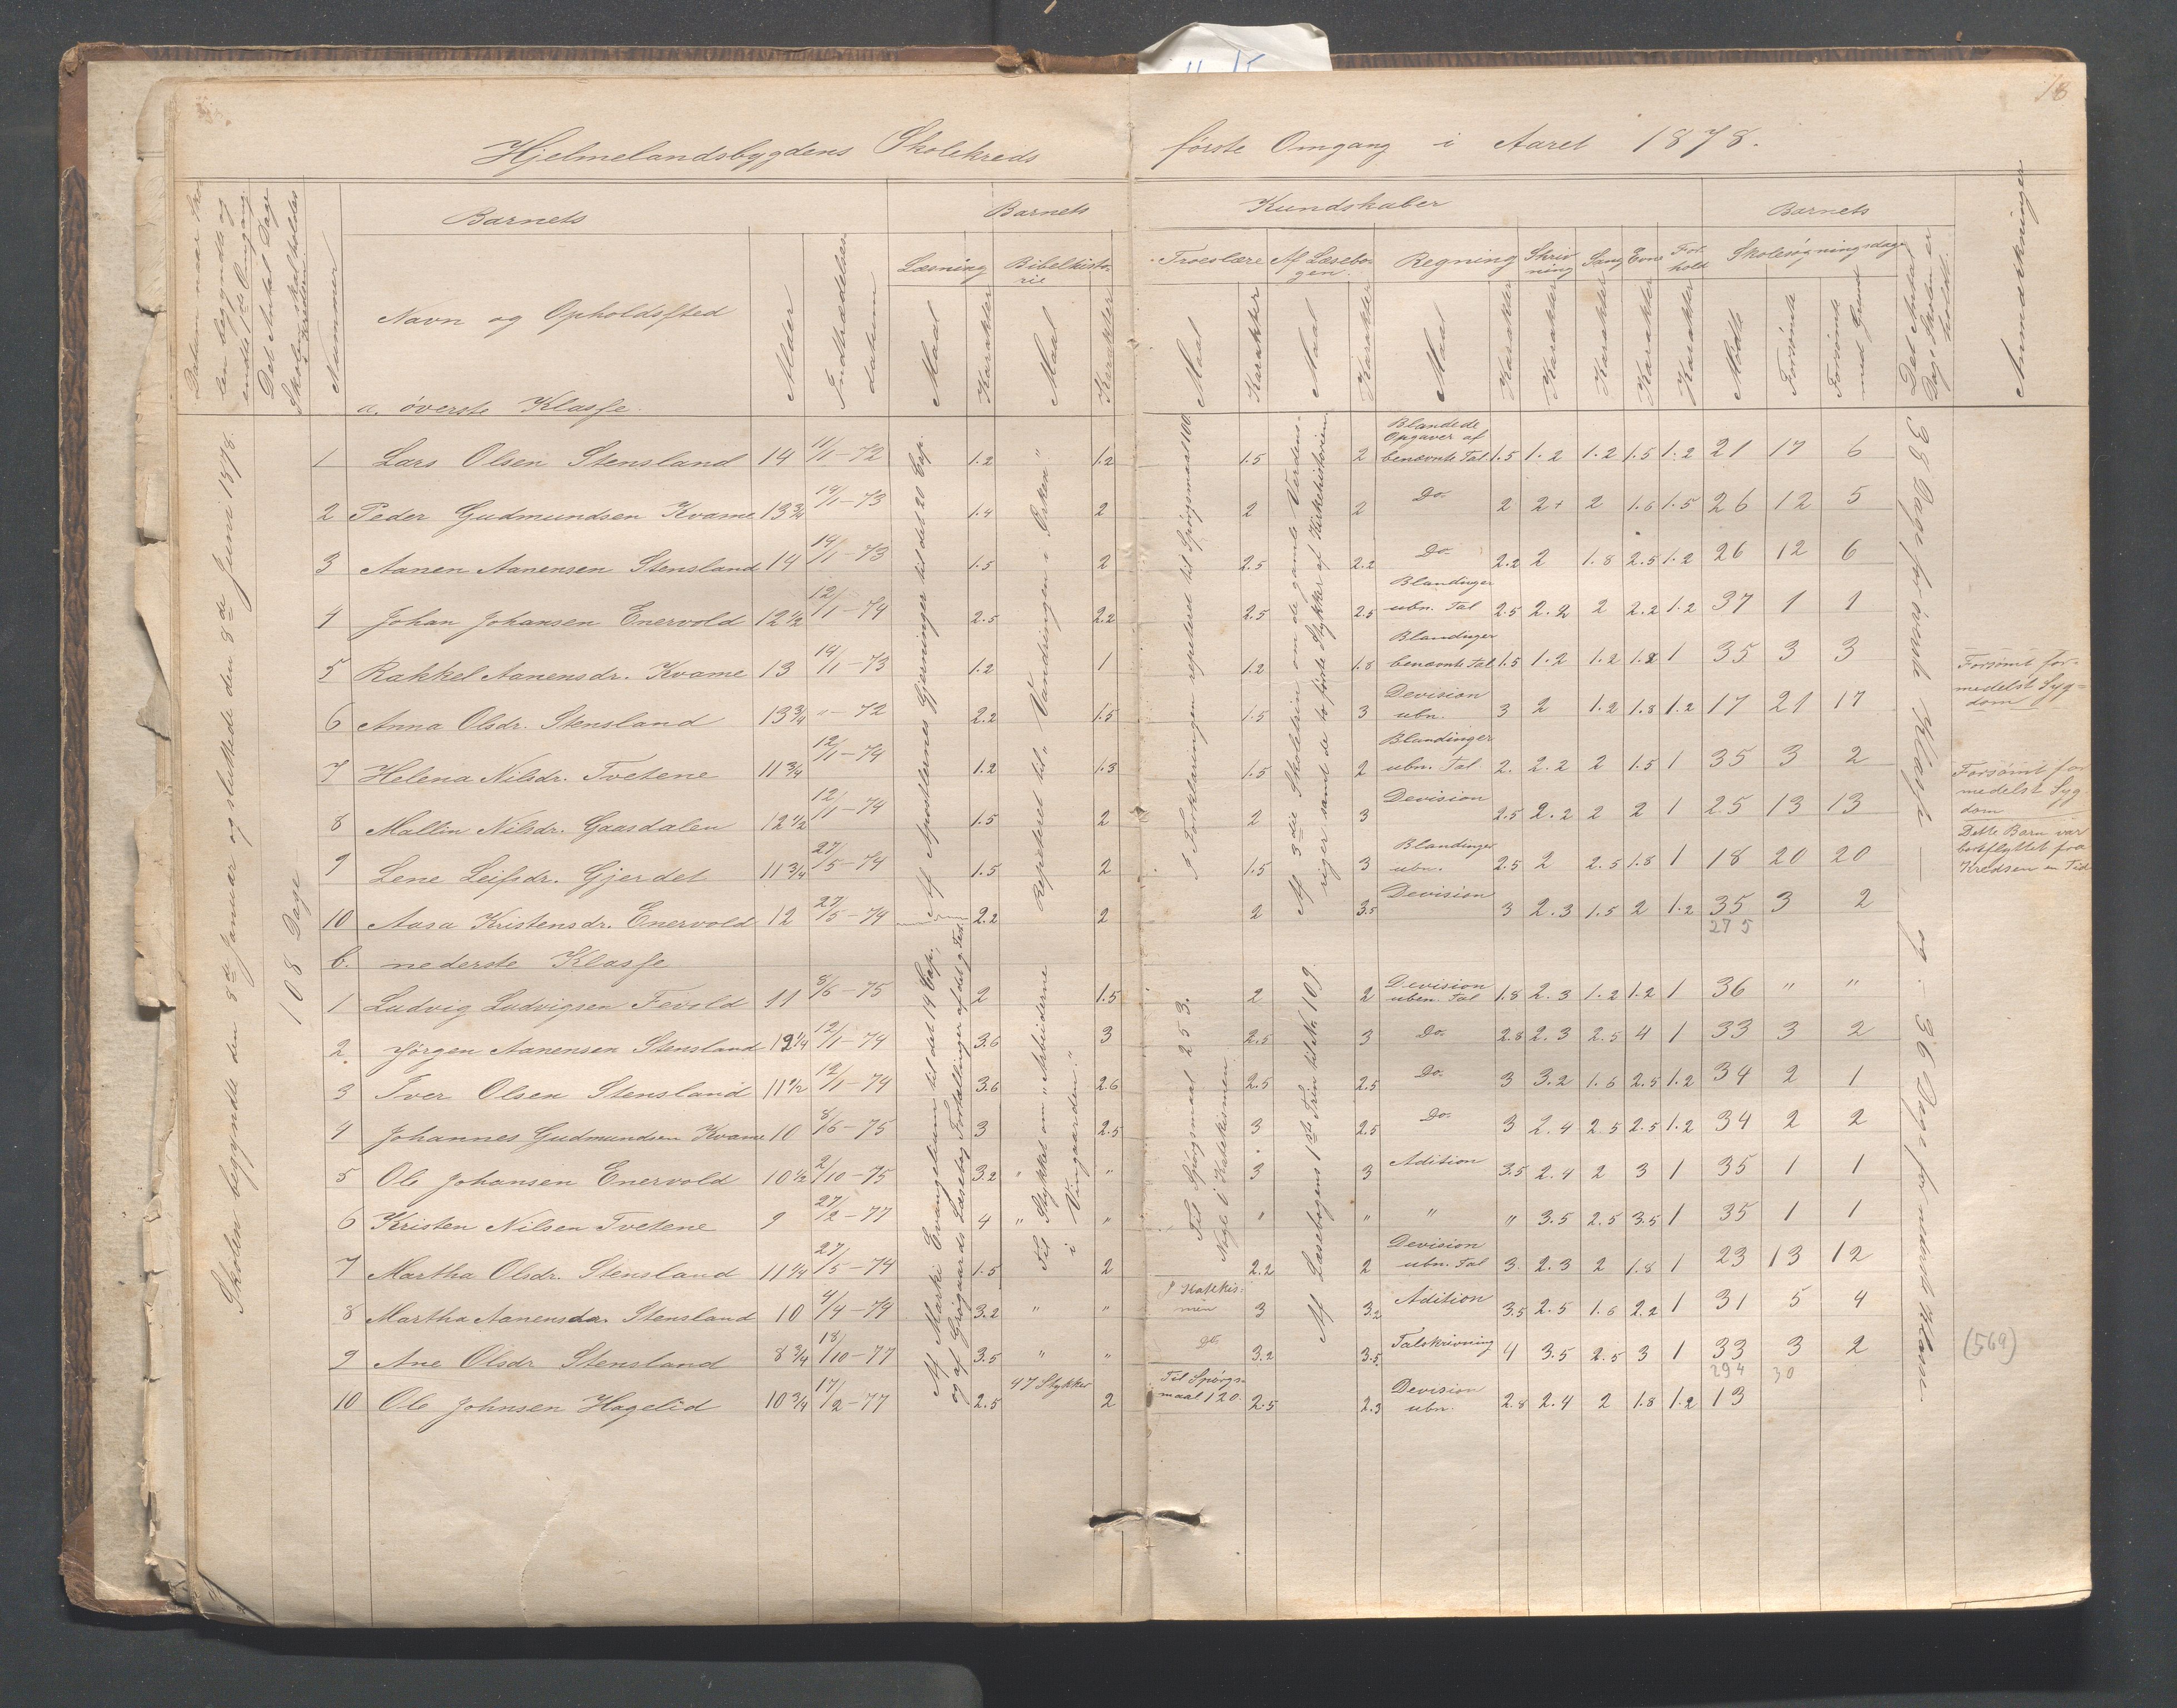 18
Hjelmelandsbygdens Skolekreds første Omgang i Aaret 1878.
Barnets Barnets Kundskaber Barnets
Læsning Bibelhisto-rie Troeslære Af Læsebo-gen. Regning Skriv-ning Sang Evne For-hold Skolesøgningsdage
Det Antal Dage Skolen skal holdes i Kredsen
Nummer
Navn og Opholdssted
Alder
Indtrædelses datum
Maal Karakter Maal Karakter Maal Karakter Maal Karakter Maal Karakter Karakter Karakter Karakter Karakter Mødte Forsømte Forsømte med Grund
Det Antal Dage Skolen er holdt.
Anmærkninger
a. øverste Klasse.
Skolen begyndte den 8de Januar og sluttede den 8de Juni 1878.
108 Dage
Af Apostlernes Gjerninger til det 20 Cap.
Repeteret til "Vandringen i Ørken"
I Forklaringen repeteret til Spørgsmaal 100
Af 3die Skoletrin om de gamle Verdens-
riger samt de to første Stykker af Kirkehistorien
38 Dage for øverste Klasse — og 36 Dage for nederste Klasse.
1 Lars Olsen Stensland 14 11/1-72 1.2 1.2 1.5 2 Blandede Opgaver af benævnte Tal 1.5 1.2 1.2 1.5 1.2 21 17 6
2 Peder Gudmundsen Kvame 13 3/4 14/1-73 1.4 2 2 2 Do. 2 2+ 2 1.6 1.5 26 12 5
3 Aanen Aanensen Stensland 14 14/1-73 1.5 2 2.5 2.2 Do. 2.2 2 1.8 2.5 1.2 26 12 6
4 Johan Johansen Enervold 12 1/2 12/1-74 2.5 2.2 2.5 2.5 Blandinger ubn. Tal 2.5 2.2 2 2.2 1.2 37 1 1
5 Rakkel Aanensdr. Kvame 13 14/1-73 1.2 1 1.2 1.8 Blandinger benævnte Tal 1.5 1.2 1.2 1.2 1 35 3 3
6 Anna Olsdr. Stensland 13 3/4 "-72 2.2 1.5 1.5 3 Devision ubn. 3 2 1.2 1.8 1.2 17 21 17 Forsømt for-
medelst Syg=
dom
7 Helena Nilsdr. Tvetene 11 3/4 12/1-74 1.2 1.3 1.5 2 Blandinger ubn. Tal 2. 2.2 2 1.5 1 35 3 2
8 Mallin Nilsdr. Gaasdalen 12 1/2 12/1-74 1.5 2 2 3 Devision 2.5 2.2 2 2 1 25 13 13 Forsømt for
medelst Syg-
dom
9 Lene Leifsdr. Gjerdet 11 3/4 27/5-74 1.5 2 1.5 3 Blandinger ubn. 2.5 2 2.5 1.8 1 18 20 20 Dette Barn var
bortflyttet fra
Kredsen en Tid
10 Aasa Kristensdr. Enervold 12 27/5-74 2.2 2 2 3.5 Devision 3 2.3 1.5 2 1.2 35 3 2
275
b. nederste Klasse
Af Marki Evangelium til det 14 Cap.
og af Grøgaards Læsebog Fortællinger af det g. Test.
Til Stykket om "Arbeiderne
i Viingaarden."
Til Spørgsmaal 253.
Nogle i Katekismen
Af Læsebogens 1ste Trin til Nr. 109.
1 Ludvig Ludvigsen Fevold 11 8/6-75 2 1.5 2 2 Devision uben. Tal 1.8 2.3 1.2 1.2 1 36 " "
2. Jørgen Aanensen Stensland 12 1/4 12/1-74 3.6 3 2.5 3 Do. 2.8 2.3 2.5 4 1 33 3 2
3 Iver Olsen Stensland 11 1/2 12/1-74 3.6 2.6 2.5 2.5 Do. 3 3.2 1.6 2.5 1.2 34 2 1
4 Johannes Gudmundsen Kvame 10 8/6-75 3 2.5 3 2.5 Do. 3 2.4 2.5 2.5 1.2 34 2 2
5 Ole Johansen Enervold 10 1/2 2/10-75 3.2 " " 3 3 Adition 3.5 2.4 2 3 1 35 1 1
6 Kristen Nilsen Tvetene 9 27/2-77 4 " " " " " " 3.5 2.5 3.5 1 35 1 1
7 Martha Olsdr. Stensland 11 1/4 27/5-74 1.5 2 2.2 2 Devision ubn. Tal 3. 2.3 2 1.8 1 23 13 12
8 Martha Aanensdar Stensland 10 4/4-74 3.2 " " I Katekis-men 3 3.2 Adition 3.5 2.5 1.6 2.2 1 31 5 4
9 Ane Olsdr Stensland 8 3/4 18/10-77 3.5 " " Do. 3.2 3.5 Talskrivning 4 3.5 2.5 3 1 33 3 2 (569)
294 30
10 Ole Johnsen Hagelid 10 3/4 17/2-77 2.5 47 Stykker 2 Til Spørgs-maal 120. 2.5 2.3 Devision ubn. 2.8 2.4 2 1.8 1.2 13